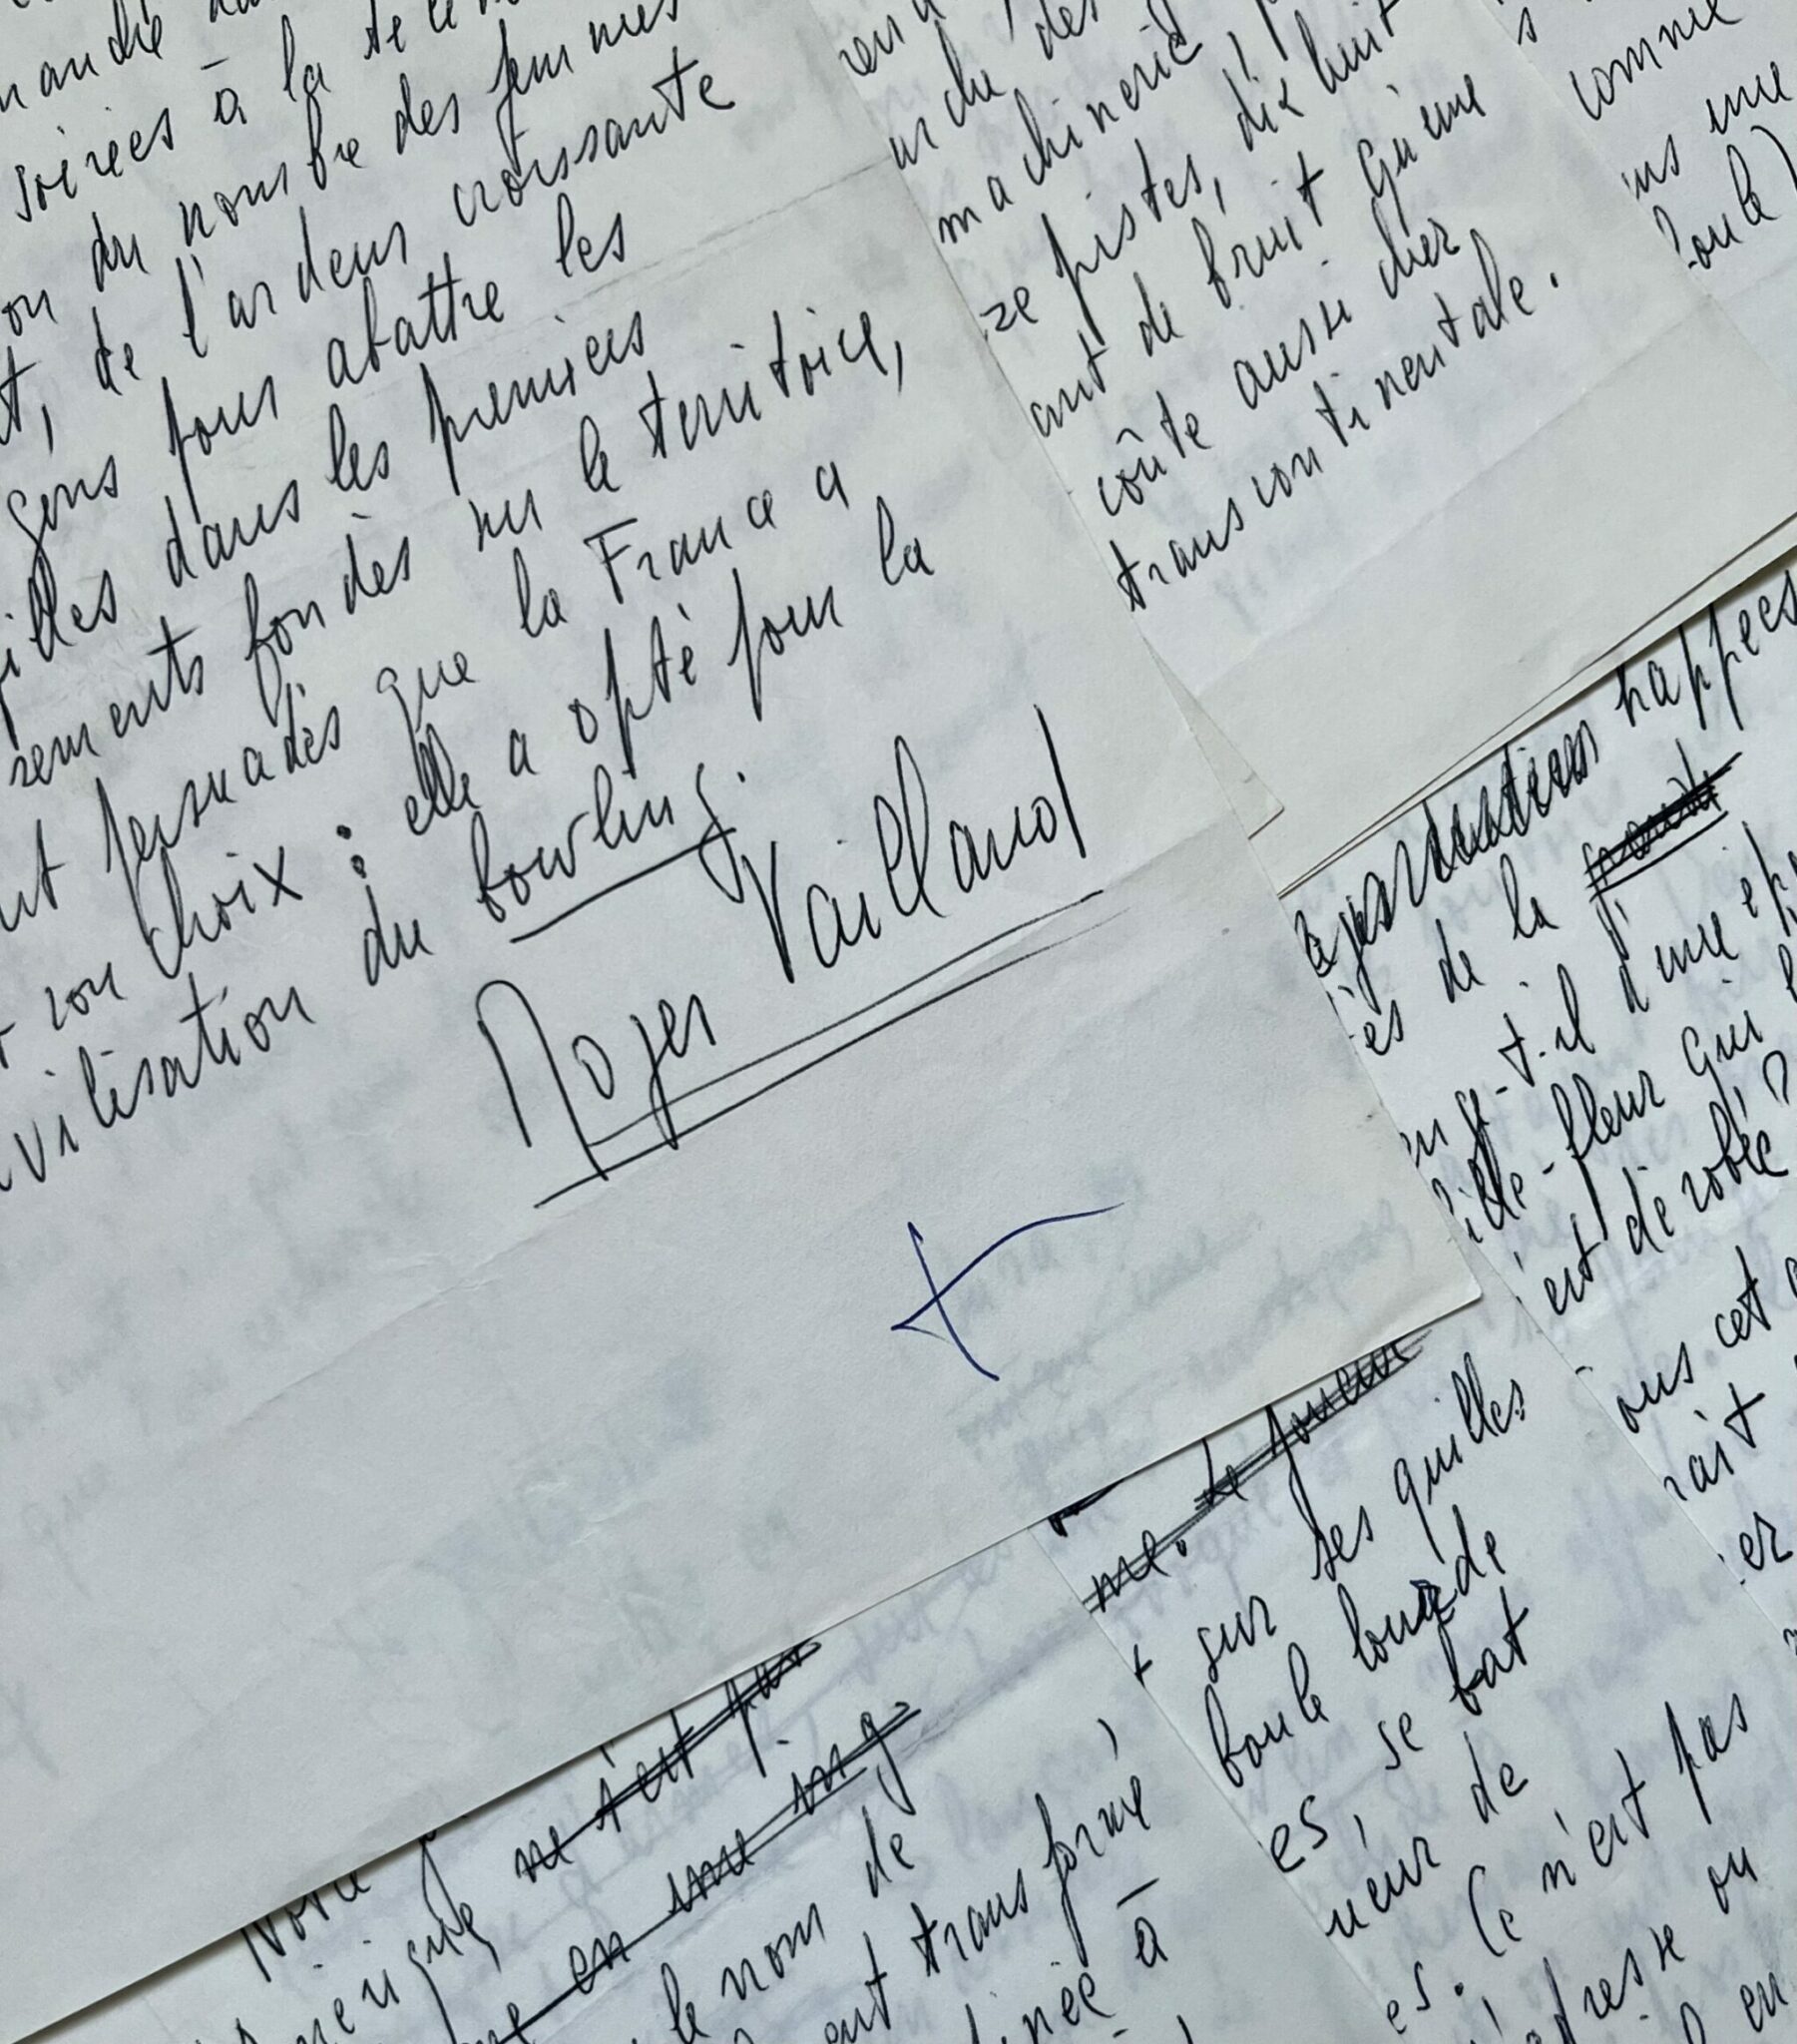 soirées à la
on du nombre des femmes
t, de l'ardeur croissante
gens pour abattre les
illes dans les premiers
sements fondés sur le territoire,
nt persuadés que la France a
son choix : elle a opté pour la
vilisation du bowling.
Roger Vailland
machinerie
ze pistes, dix huit
ant de bruit qu'une
coûte aussi cher
transcontinentale.
comme
ns une
boule)
happées
és de la
t-il d'une
ille-fleur qui
est dérobée ?
ous cet
rait
er
me. Le joueur
sur ses quilles
boule lourde
es se bat
ueur de
es. Ce n'est pas
ou
en
Notre
ne s'est pas
en une
le nom de
ent transformé
née à